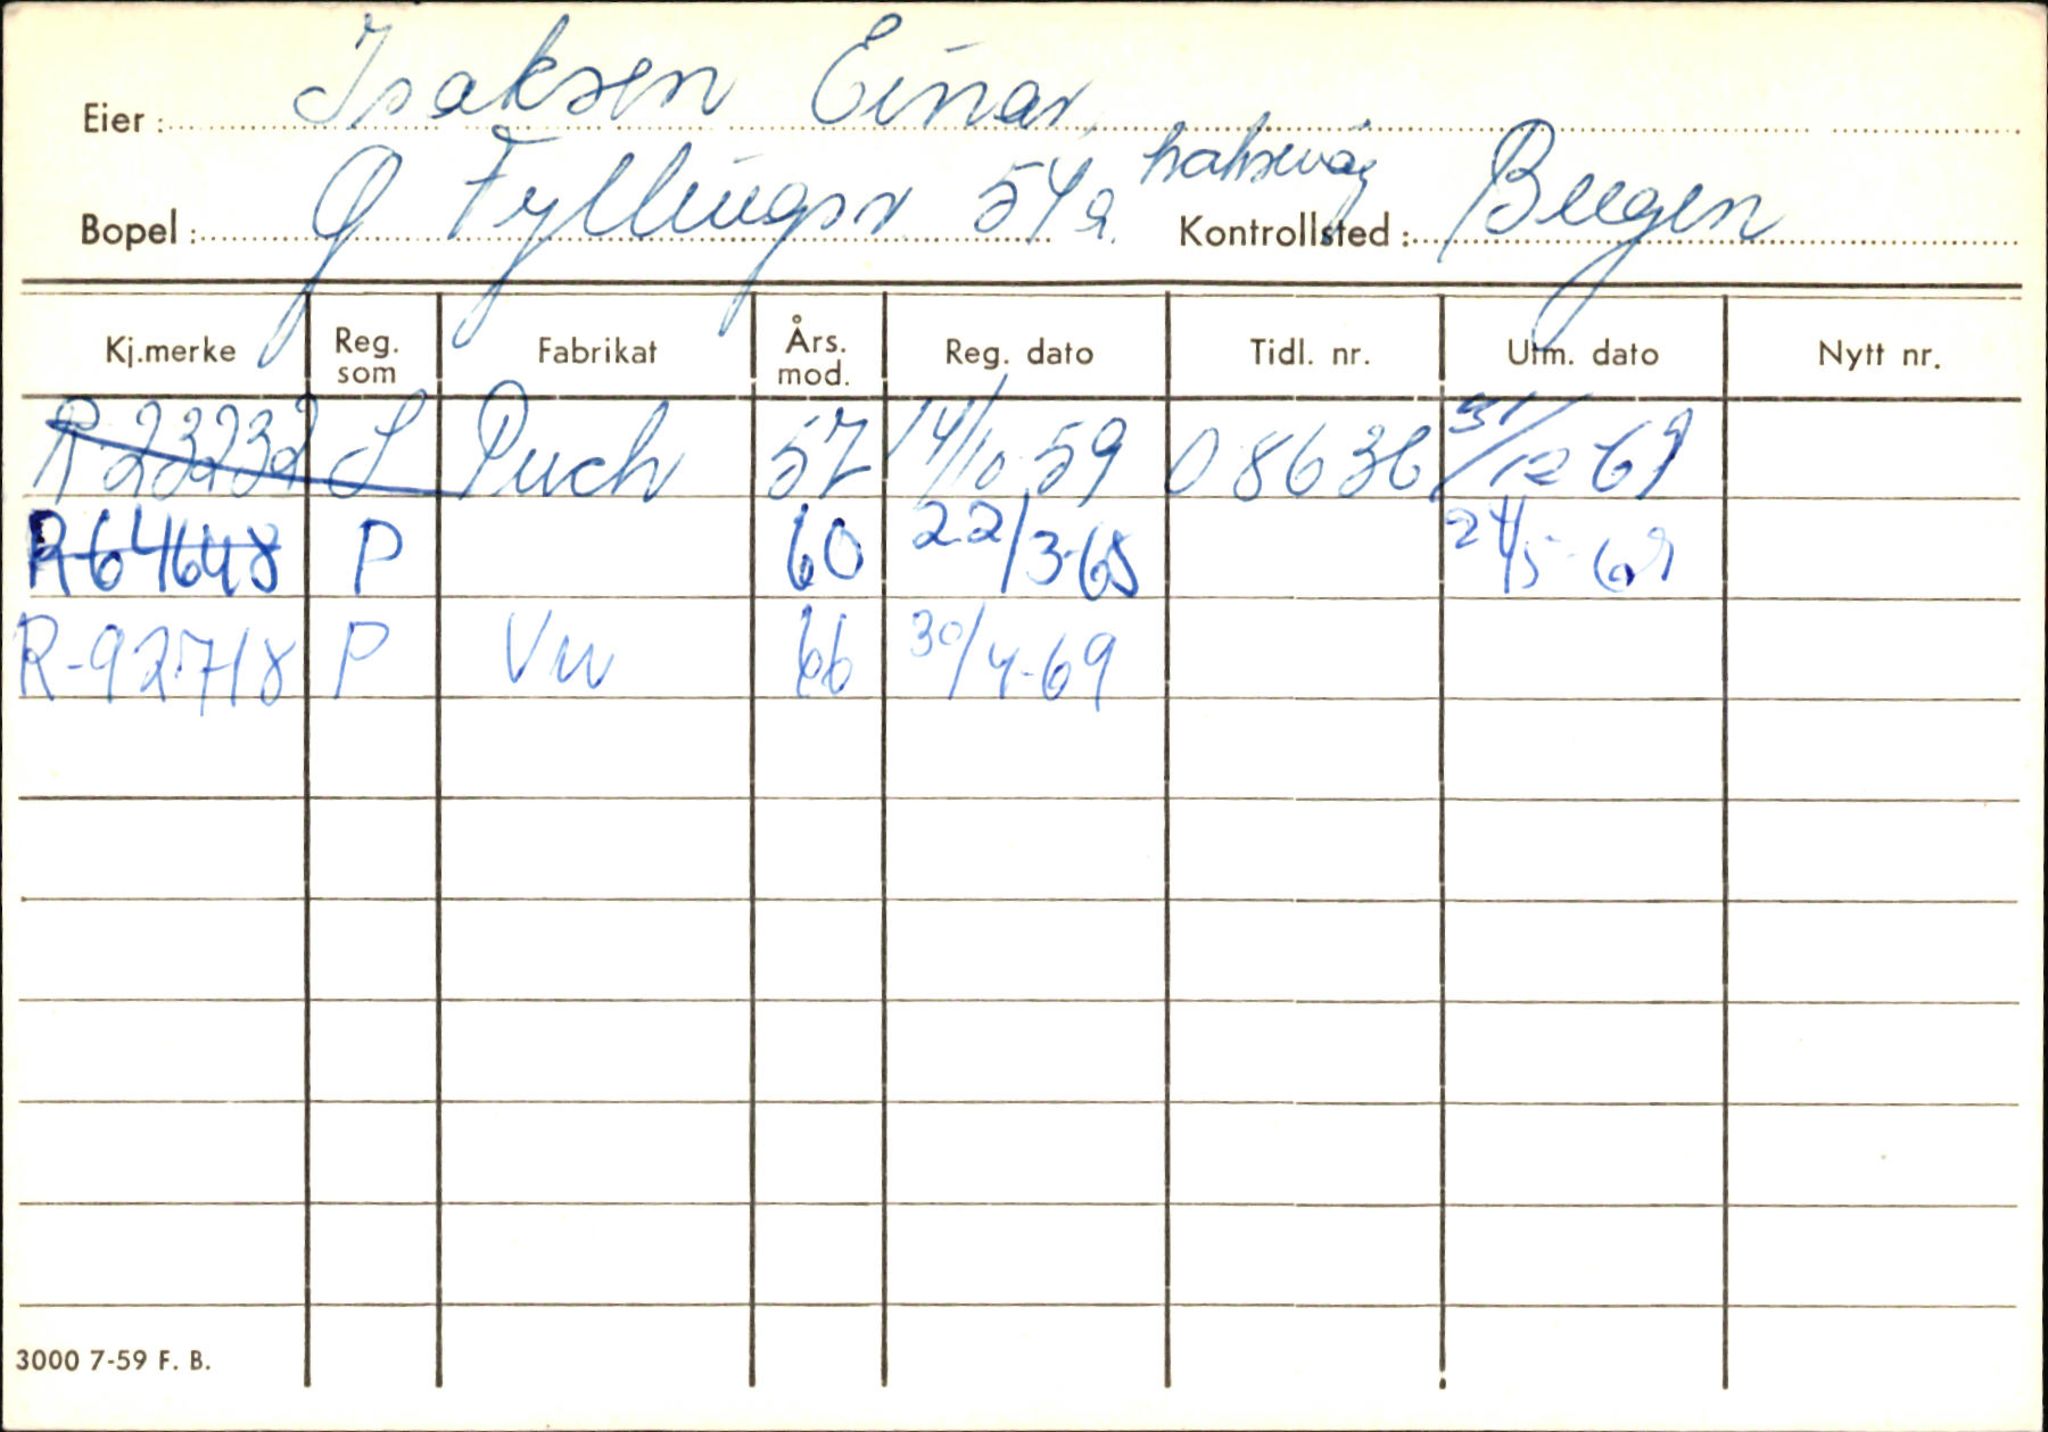 Eier: Isaksen Einar
Bopel: G Fyllingsv 54a. Laksevåg Kontrollsted: Bergen
Kj.merke Reg. som Fabrikat Års. mod. Reg. dato Tidl. nr. Utm. dato Nytt nr.
R-23232 L Puch 57 14/10 59 O 8636 31/12 69
R-64648 P 60 22/3-65 24/5-69
R-92718 P VW 66 30/4-69
3000 7-59 F. B.